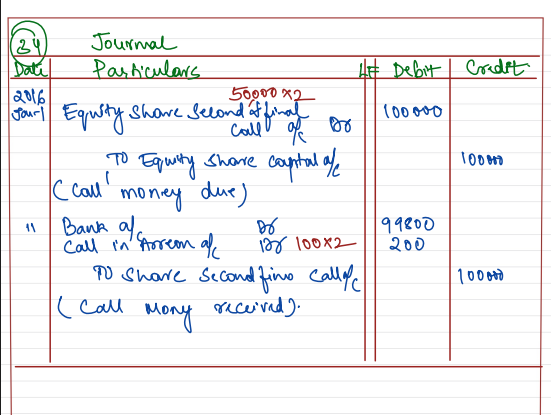 34 Journal
Date Particulars LF Debit Credit
50000 x 2
2016
Jan-1 Equity Share Second & final
call a/c Dr 100000
To Equity Share capital a/c 100000
(Call money due)
" Bank a/c Dr 99800
Call in Arrear a/c Dr 100x2 200
To Share Second fino call a/c 100000
(Call mony received).